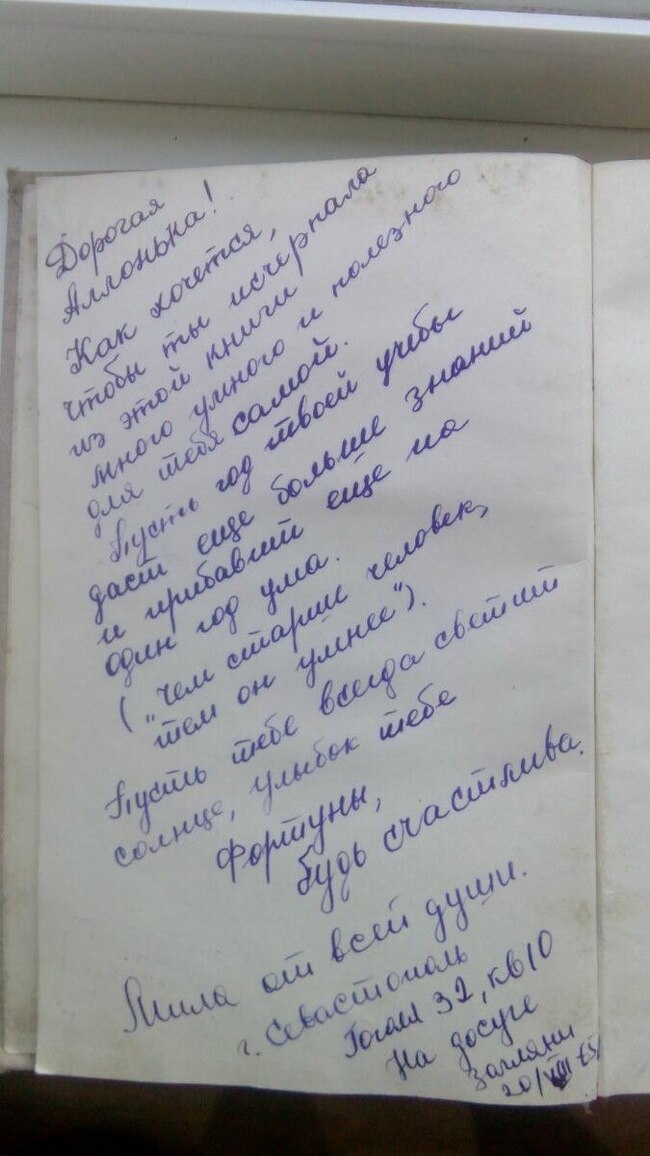 Дорогая
Аллонька!
Как хочется,
чтобы ты исчерпала
из этой книги
много умного и полезного
для тебя самой.
Пусть год твоей учебы
даст еще больше знаний
и прибавит еще на
один год ума.
("чем старше человек,
тем он умнее").
Пусть тебе всегда светит
солнце, улыбок тебе
Фортуны,
будь счастлива.
Мила от всей души.
г. Севастополь
Гоголя 32, кв 10
На досуге
загляни
20/VIII